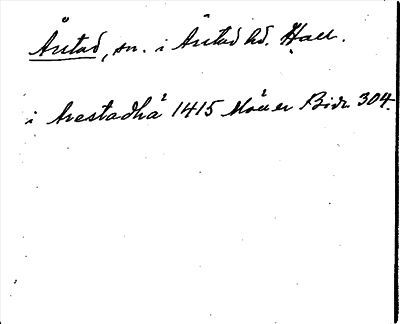 Årstad, sn. i Årstad hd. Hall.
i Arestadha 1415 Måner Bidr. 304.